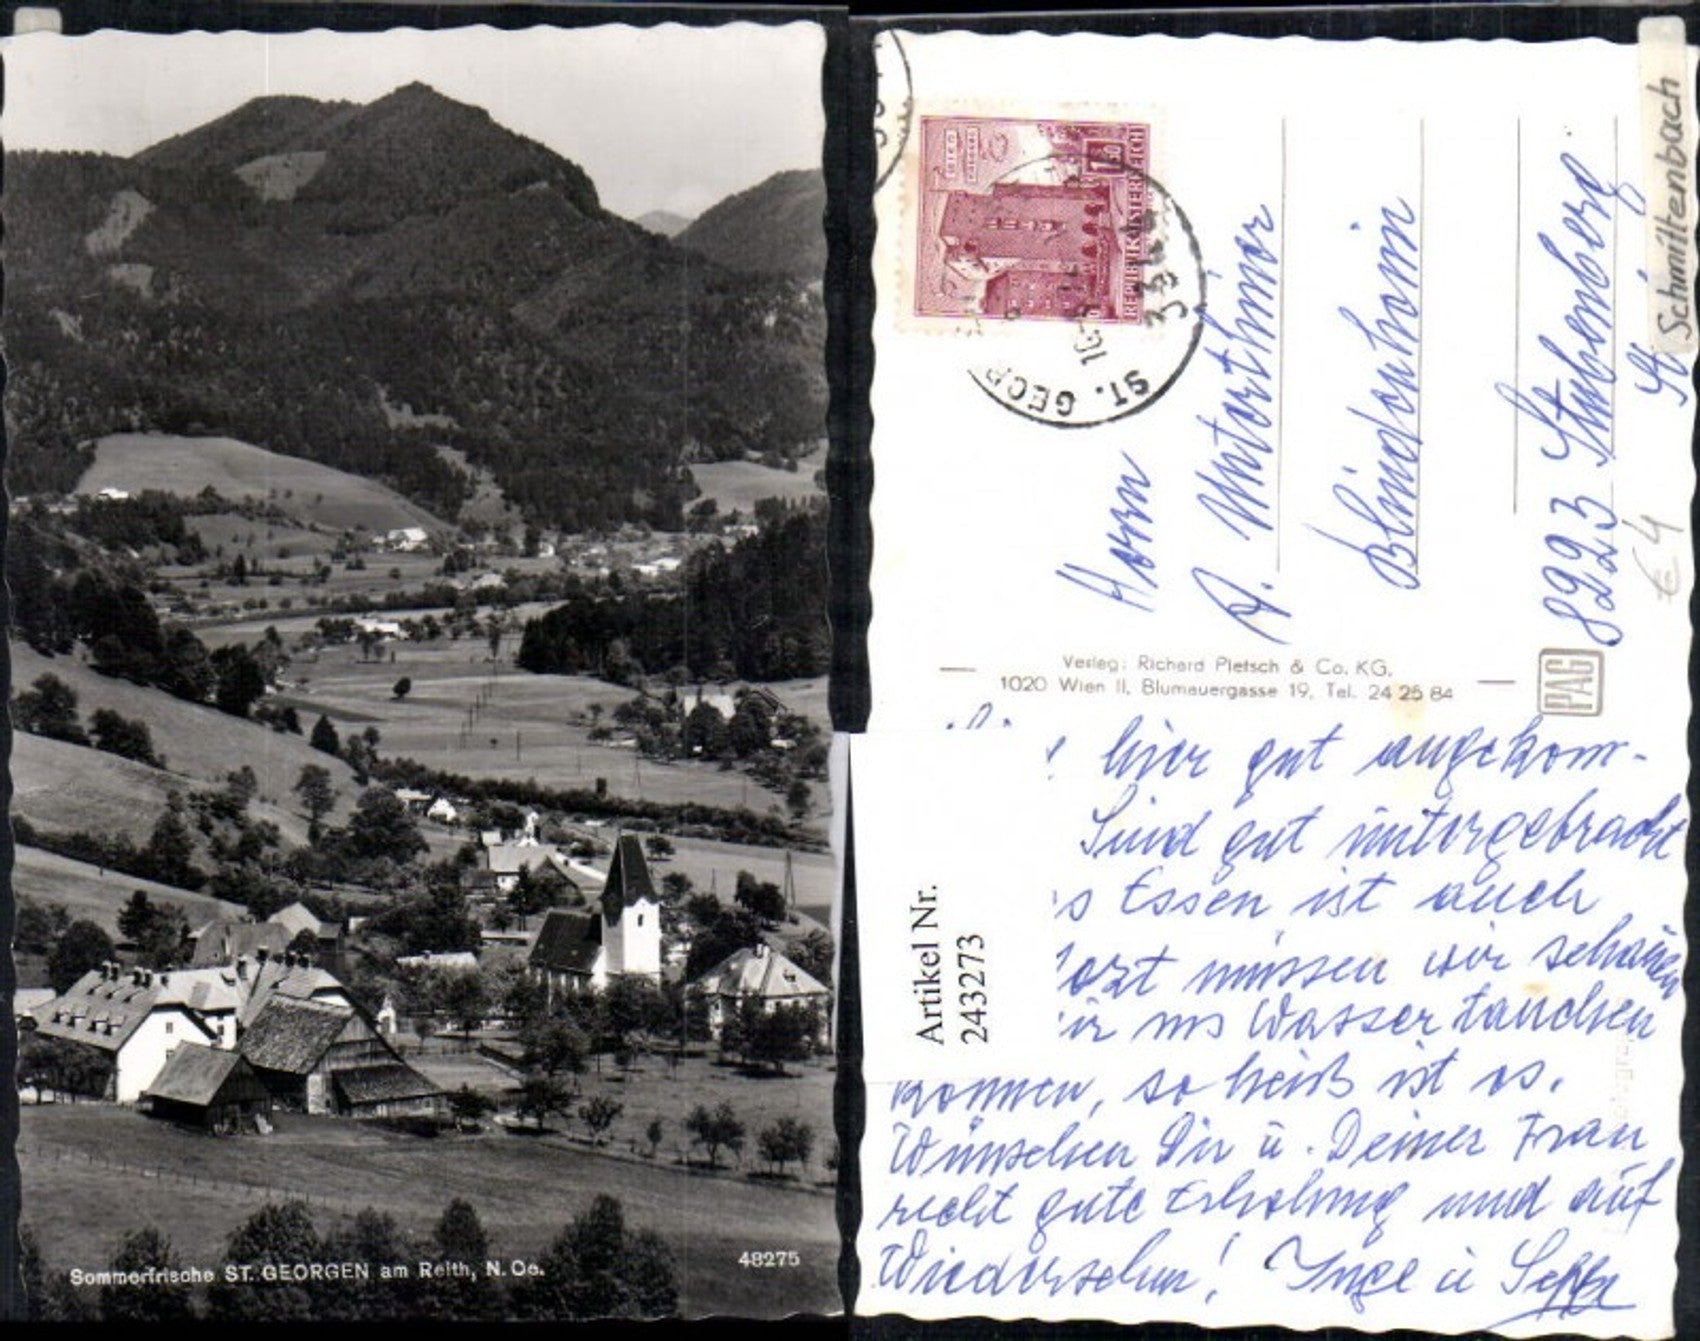 Sommerfrische ST. GEORGEN am Reith, N. Oe.
48275
REPUBLIK ÖSTERREICH
ST. GEOR
3344
Herrn
A. Untorthinor
Blindenheim
8223 Stubenberg
St.
Schmiltenbach
€ 4
Verlag: Richard Pietsch & Co. KG.
1020 Wien II, Blumauergasse 19, Tel. 24 25 84
PAG
Artikel Nr.
243273
hier gut angekom-
Sind gut untergebracht
s Essen ist auch
müssen wir schauen
ir ins Wasser tauchen
können, so heiß ist es.
Wünschen Dir u. Deiner Frau
recht gute Erholung und auf
Wiedersehen! Inge u Sepp